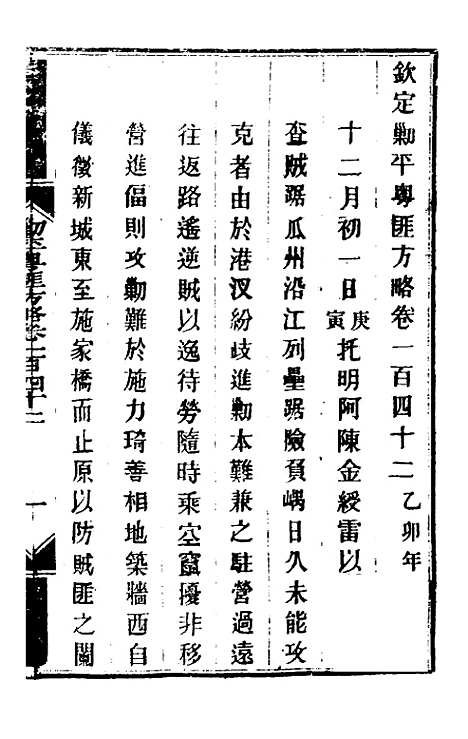 欽定勦平粵匪方略卷一百四十二乙卯年
十二月初一日庚寅托明阿陳金綬雷以
查賊踞瓜州沿江列壘踞險負嵎日久未能攻
克者由於港汊紛歧進勦本難兼之駐營過遠
往返路遙逆賊以逸待勞隨時乘空竄擾非移
營進偪則攻勦難於施力琦善相地築牆西自
儀徵新城東至施家橋而止原以防賊匪之闌
勦平粵匪方略卷一百四十二
一